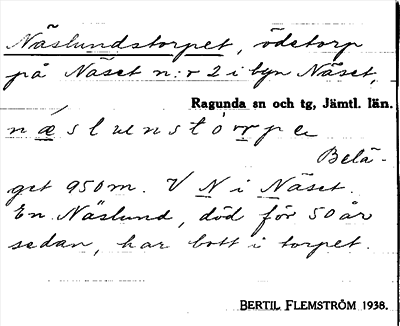 Näslundstorpet, ödetorp
på Näset n:r 2 i byn Näset,
Ragunda sn och tg, Jämtl. län.
næslʉenstórpe
Belä-
get 950 m. V N i Näset.
En Näslund, död för 50 år
sedan, har bott i torpet.
BERTIL FLEMSTRÖM 1938.